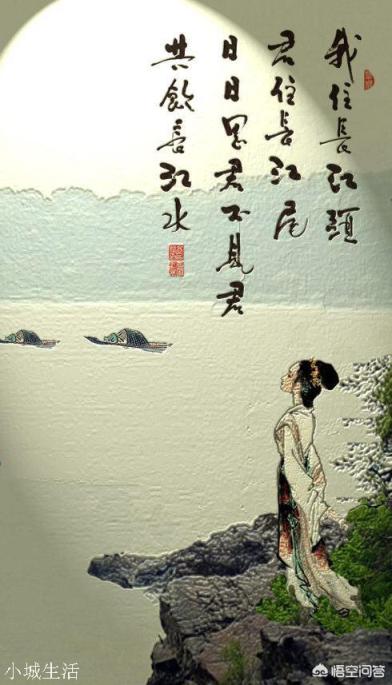 我住長江頭
君住長江尾
日日思君不見君
共飲長江水
小城生活
悟空问答